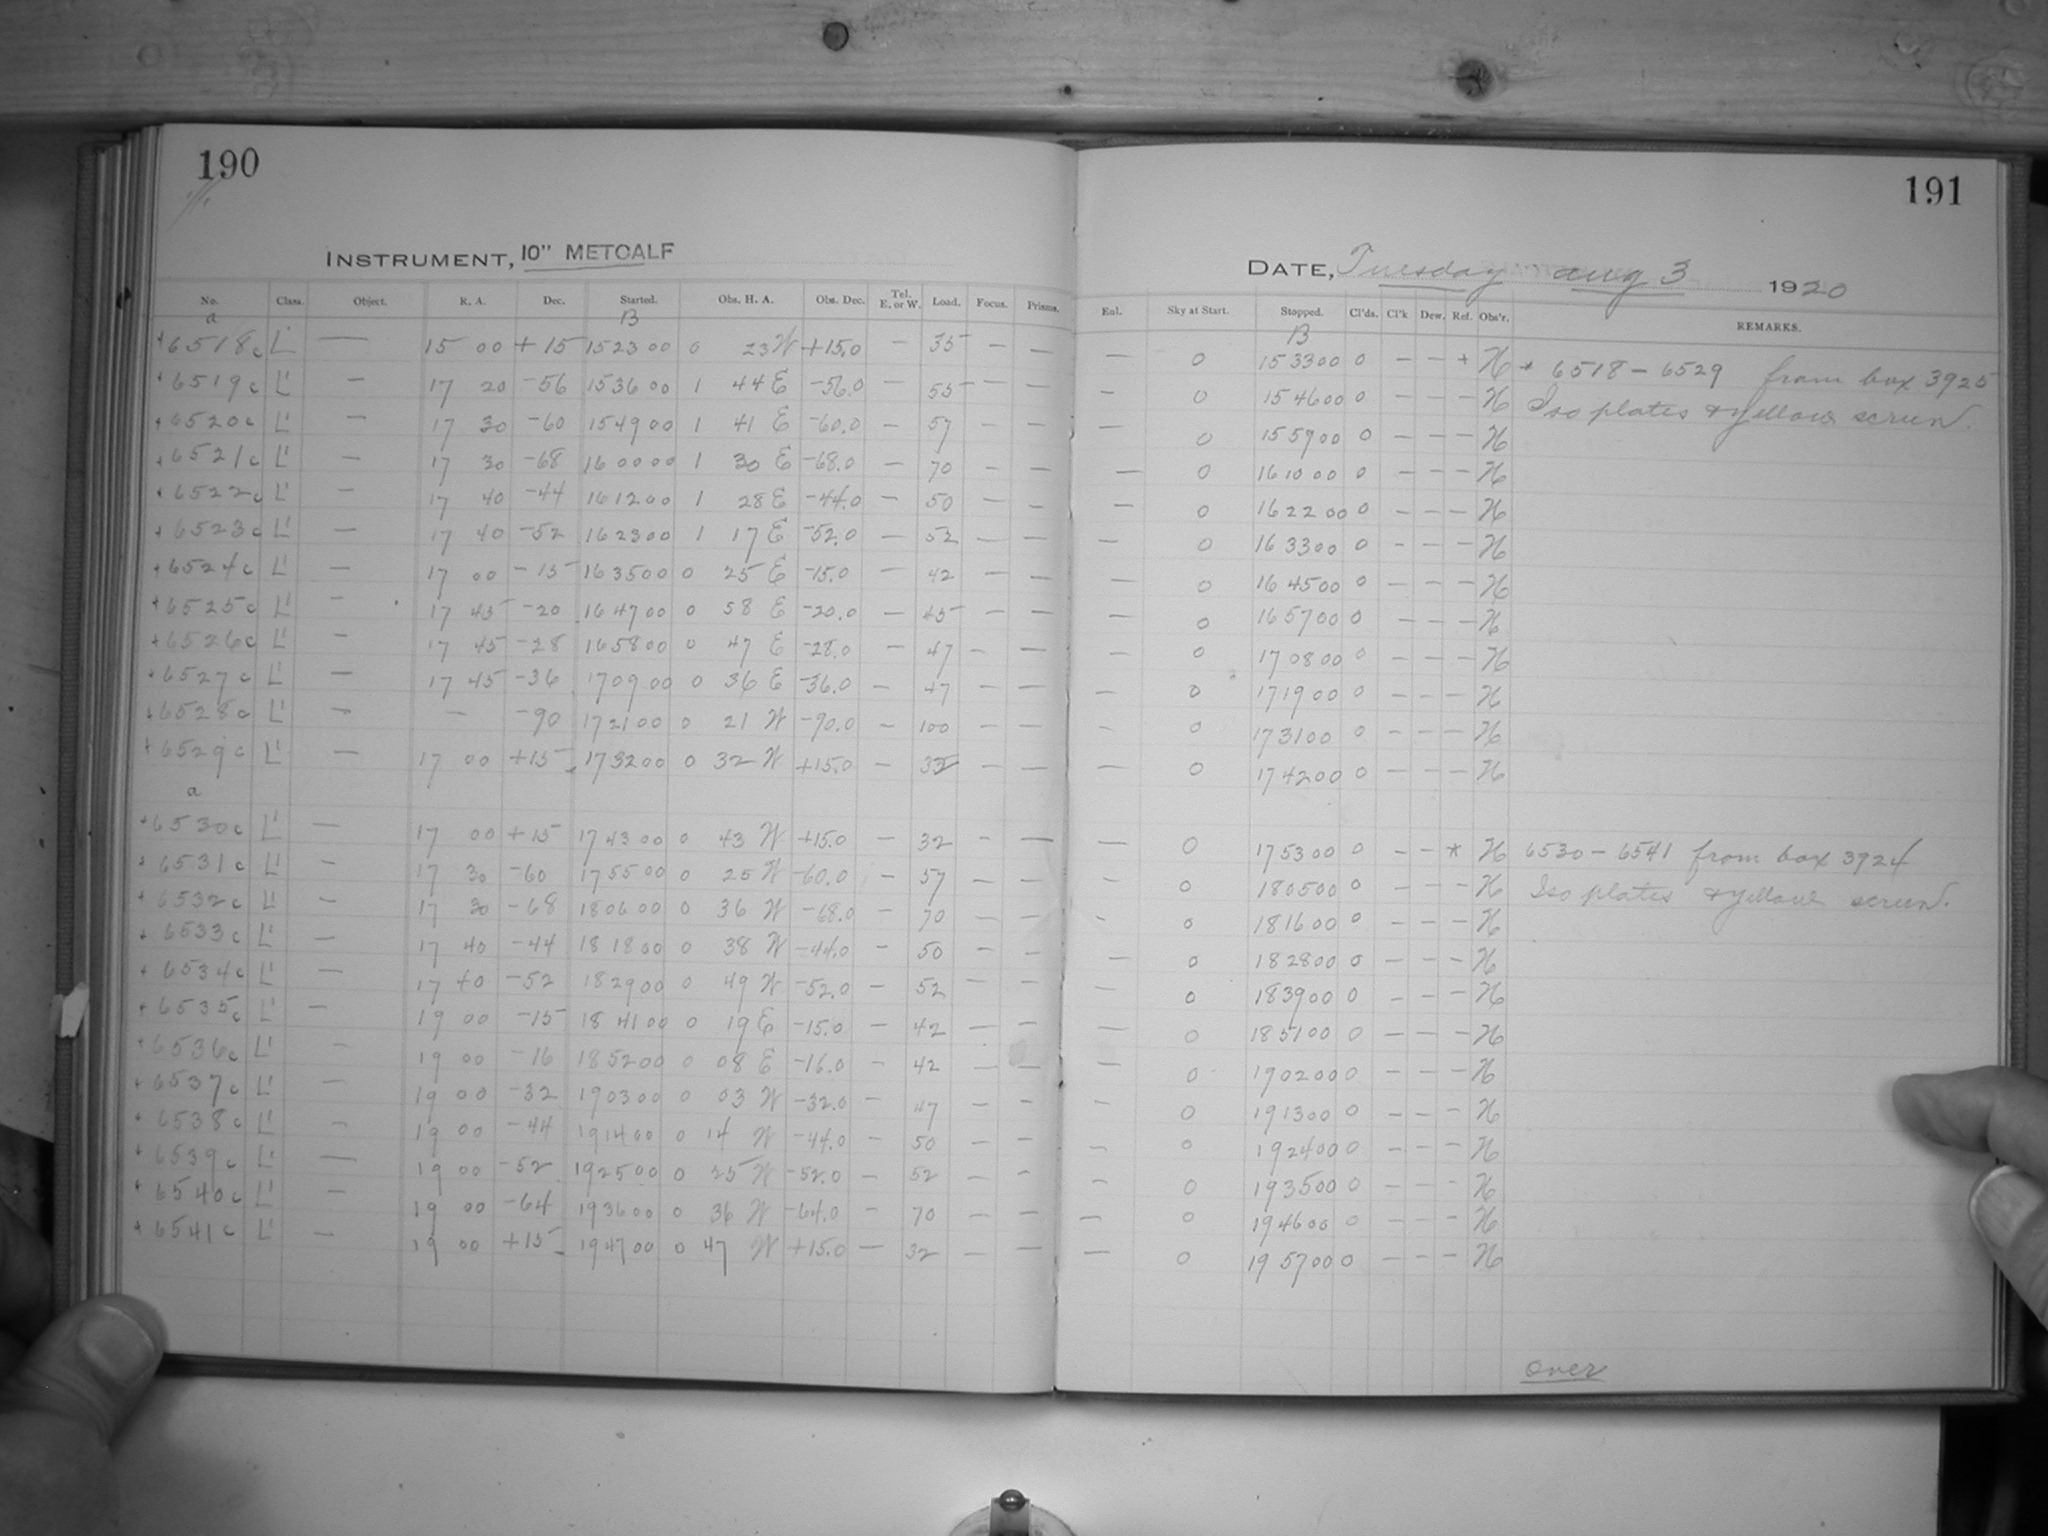 190
INSTRUMENT, 10" METCALF
No. Class. Object. R. A. Dec. Started. Obs. H. A. Obs. Dec. Tel. E. or W. Load. Focus. Prisms.
a B
+6518c L' — 15 00 +15 152300 0 23 W +15.0 — 35 — —
+6519c L' — 17 20 -56 153600 1 44 E -56.0 — 55 — —
+6520c L' — 17 30 -60 154900 1 41 E -60.0 — 57 — —
+6521c L' — 17 30 -68 160000 1 30 E -68.0 — 70 — —
+6522c L' — 17 40 -44 161200 1 28 E -44.0 — 50 — —
+6523c L' — 17 40 -52 162300 1 17 E -52.0 — 52 — —
+6524c L' — 17 00 -15 163500 0 25 E -15.0 — 42 — —
+6525c L' — 17 45 -20 164700 0 58 E -20.0 — 45 — —
+6526c L' — 17 45 -28 165800 0 47 E -28.0 — 47 — —
+6527c L' — 17 45 -36 170900 0 36 E -36.0 — 47 — —
+6528c L' — — -90 172100 0 21 W -90.0 — 100 — —
+6529c L' — 17 00 +15 173200 0 32 W +15.0 — 32 — —
a
+6530c L' — 17 00 +15 174300 0 43 W +15.0 — 32 — —
+6531c L' — 17 30 -60 175500 0 25 W -60.0 — 57 — —
+6532c L' — 17 30 -68 180600 0 36 W -68.0 — 70 — —
+6533c L' — 17 40 -44 181800 0 38 W -44.0 — 50 — —
+6534c L' — 17 40 -52 182900 0 49 W -52.0 — 52 — —
+6535c L' — 19 00 -15 184100 0 19 E -15.0 — 42 — —
+6536c L' — 19 00 -16 185200 0 08 E -16.0 — 42 — —
+6537c L' — 19 00 -32 190300 0 03 W -32.0 — 47 — —
+6538c L' — 19 00 -44 191400 0 14 W -44.0 — 50 — —
+6539c L' — 19 00 -52 192500 0 25 W -52.0 — 52 — —
+6540c L' — 19 00 -64 193600 0 36 W -64.0 — 70 — —
+6541c L' — 19 00 +15 194700 0 47 W +15.0 — 32 — —
191
DATE, Tuesday aug 3 1920
Enl. Sky at Start. Stopped. Cl'ds. Cl'k Dew. Ref. Obs'r. REMARKS.
B
— 0 153300 0 — — + H + 6518 - 6529 from box 3925
— 0 154600 0 — — — H Iso plates & yellow screen.
— 0 155900 0 — — — H
— 0 161000 0 — — — H
— 0 162200 0 — — — H
— 0 163300 0 — — — H
— 0 164500 0 — — — H
— 0 165700 0 — — — H
— 0 170800 0 — — — H
— 0 171900 0 — — — H
— 0 173100 0 — — — H
— 0 174200 0 — — — H
— 0 175300 0 — — * H 6530 - 6541 from box 3924
— 0 180500 0 — — — H Iso plates & yellow screen.
— 0 181600 0 — — — H
— 0 182800 0 — — — H
— 0 183900 0 — — — H
— 0 185100 0 — — — H
— 0 190200 0 — — — H
— 0 191300 0 — — — H
— 0 192400 0 — — — H
— 0 193500 0 — — — H
— 0 194600 0 — — — H
— 0 195700 0 — — — H
over